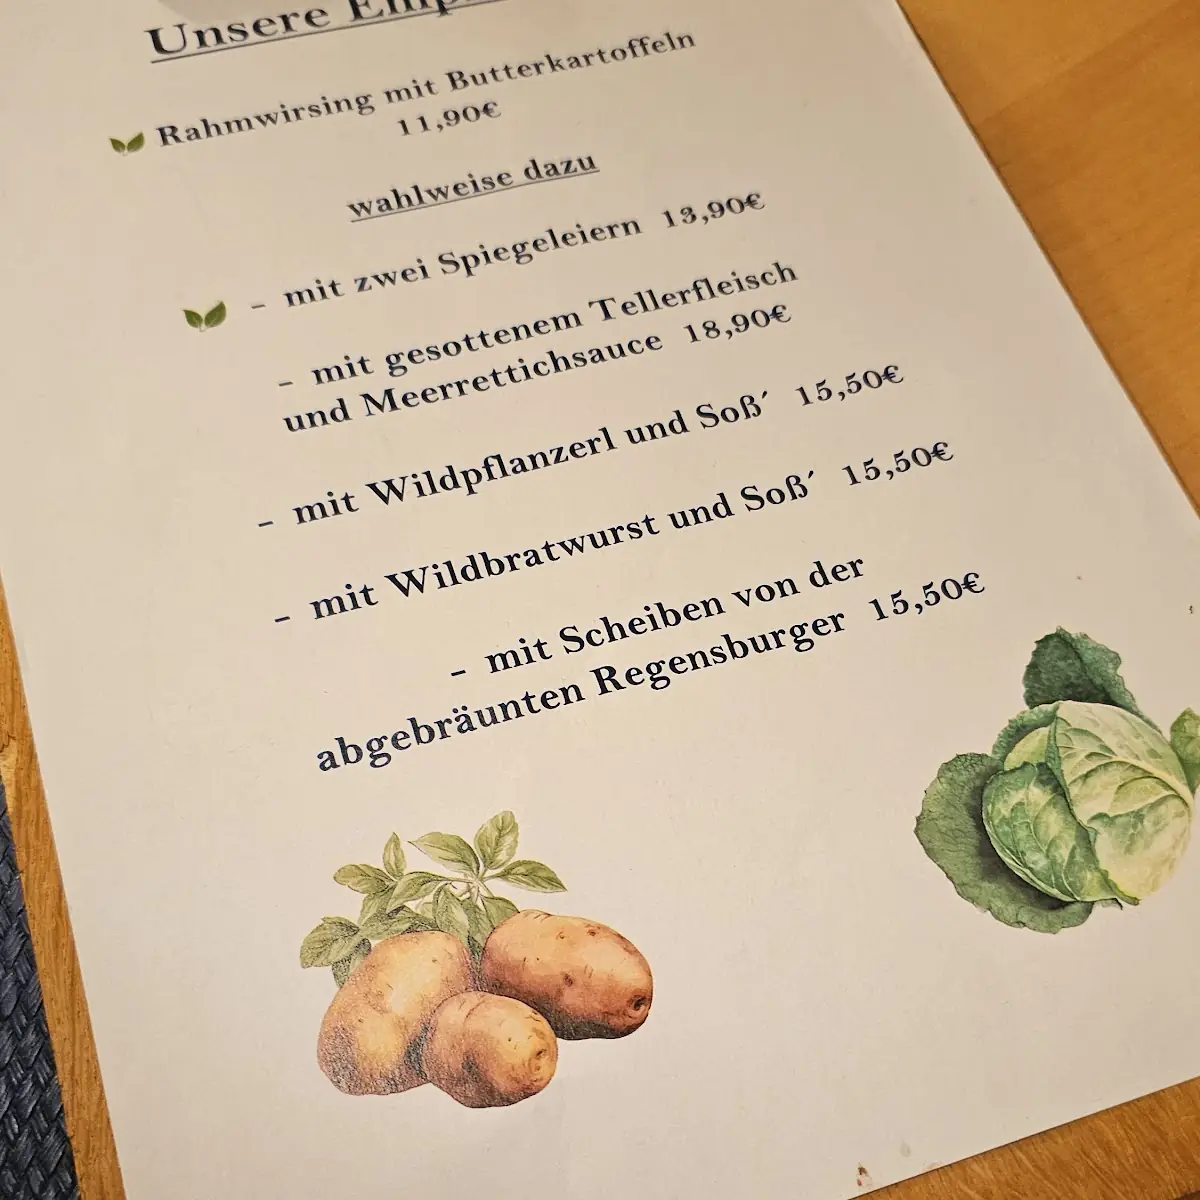 Unsere
Rahmwirsing mit Butterkartoffeln
11,90€
wahlweise dazu
- mit zwei Spiegeleiern 13,90€
- mit gesottenem Tellerfleisch
und Meerrettichsauce 18,90€
- mit Wildpflanzerl und Soß´ 15,50€
- mit Wildbratwurst und Soß´ 15,50€
- mit Scheiben von der
abgebräunten Regensburger 15,50€